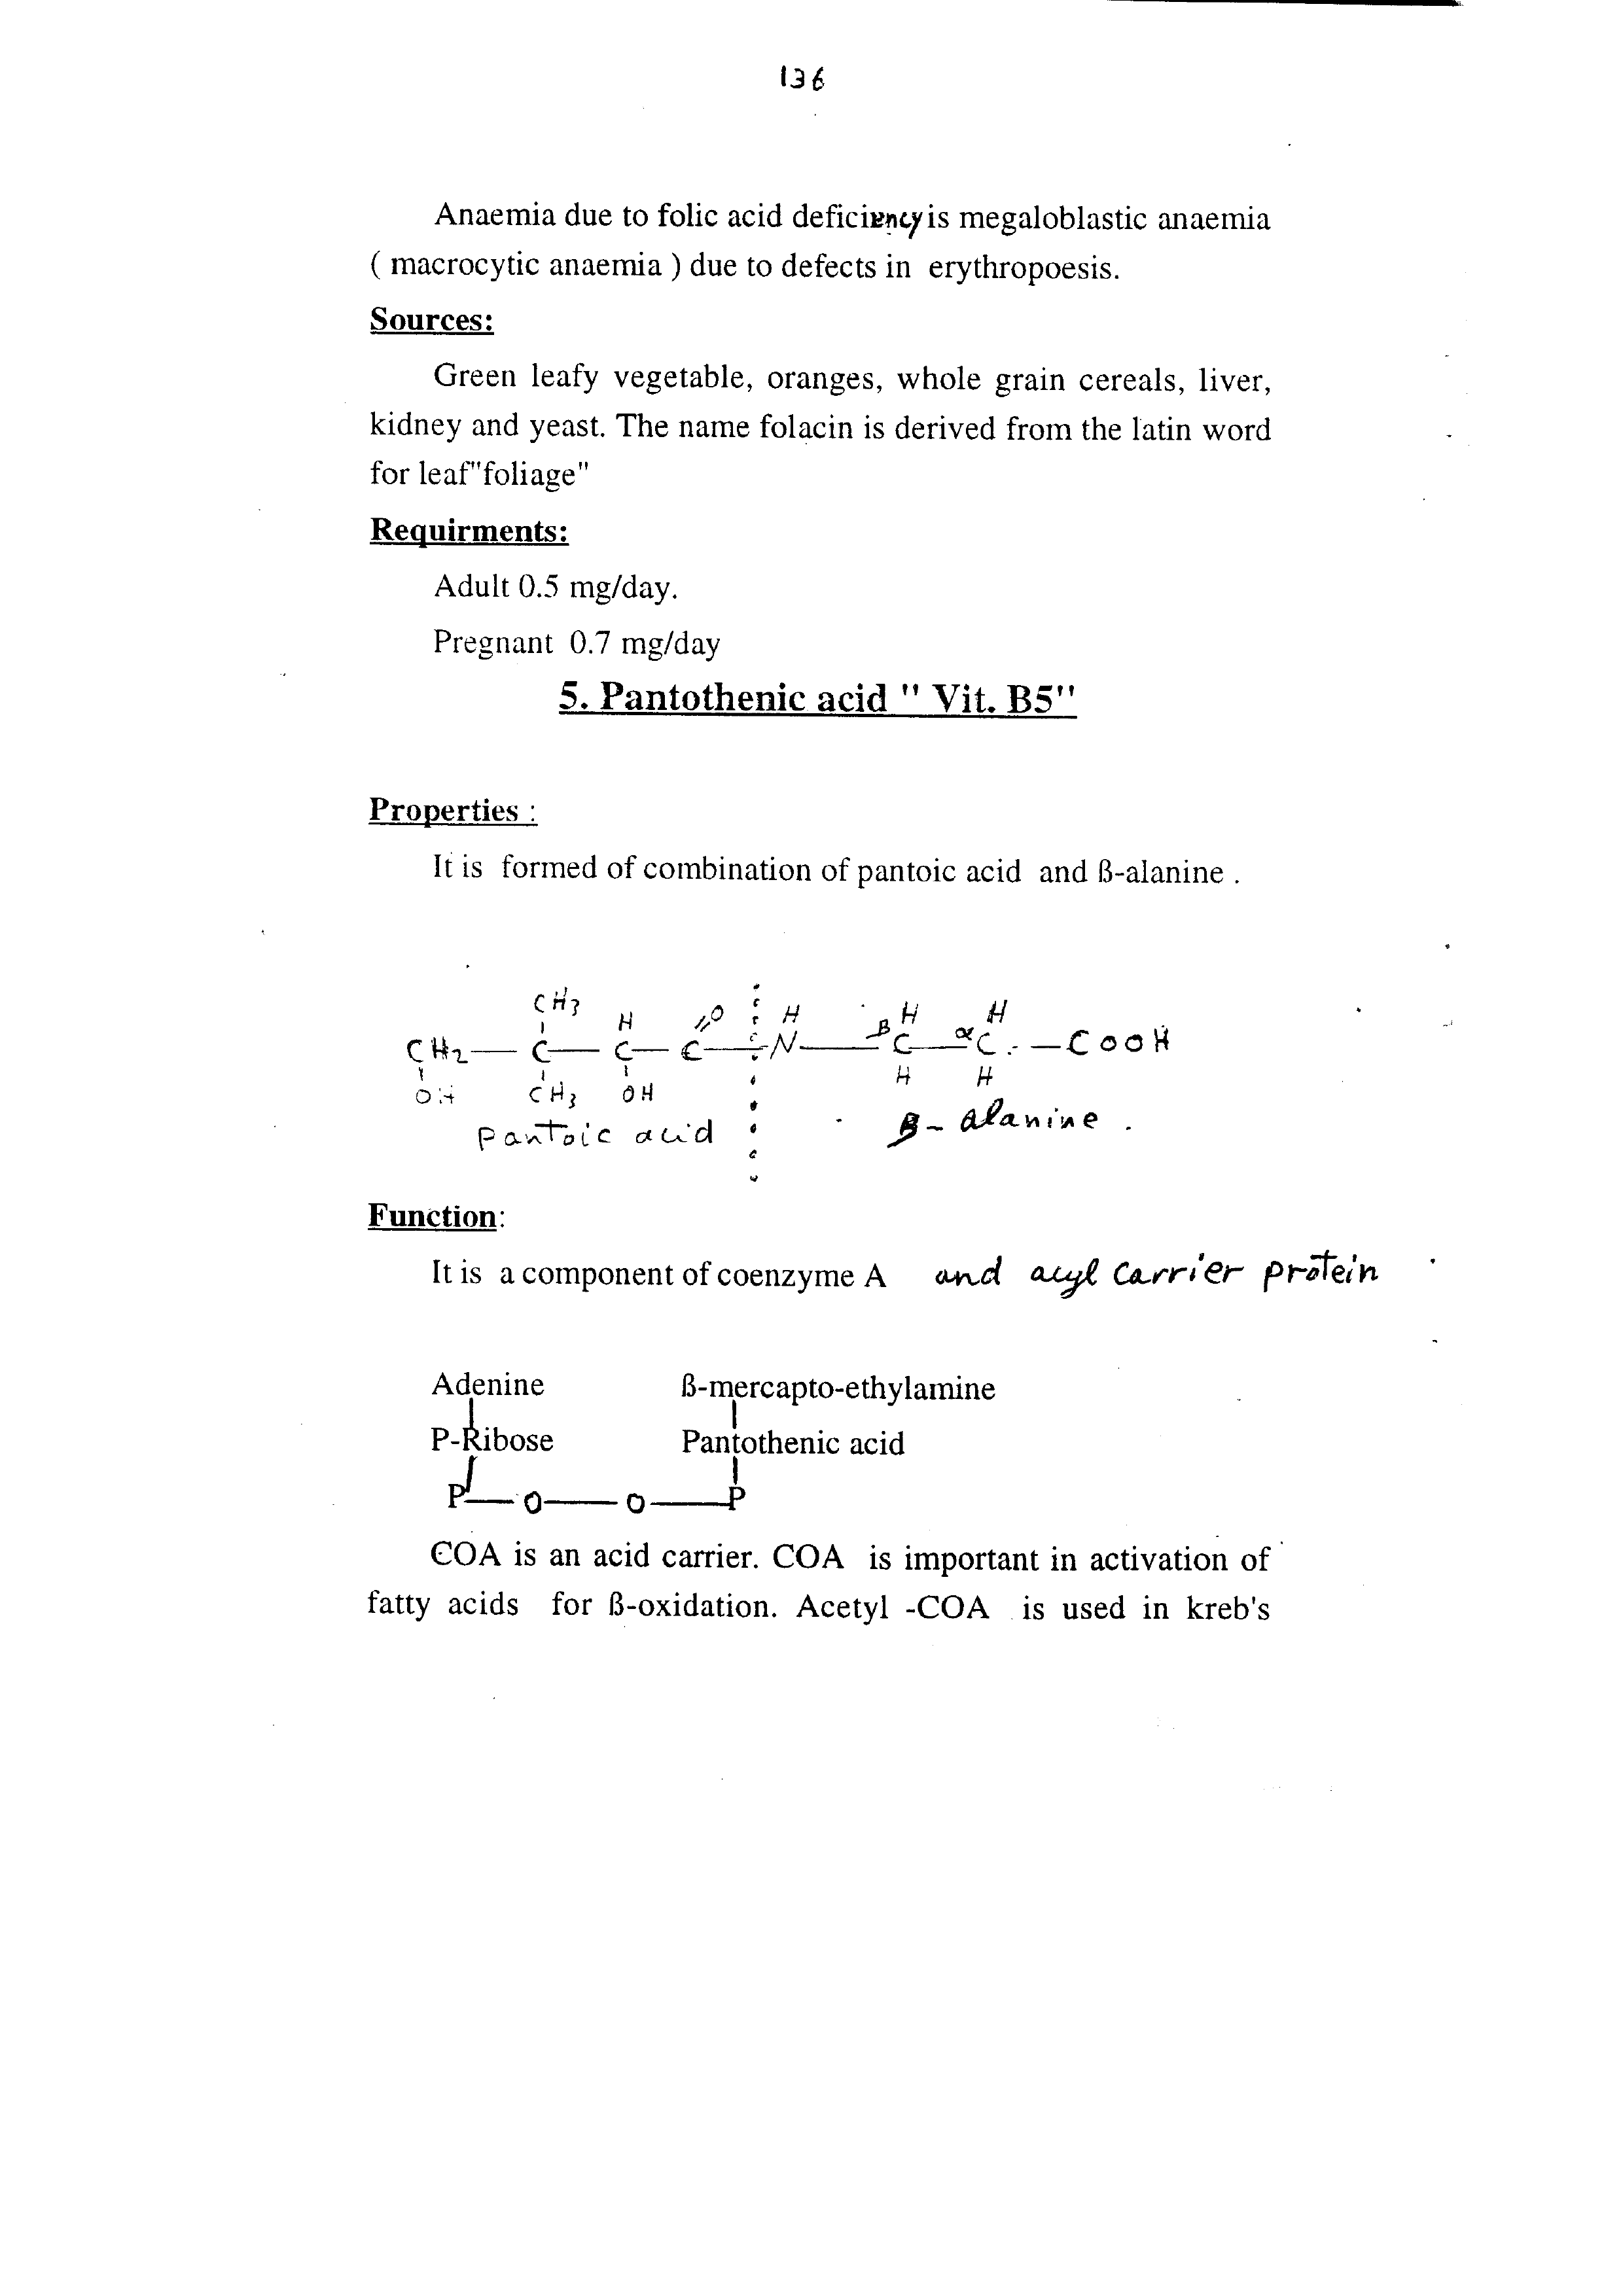 136
Anaemia due to folic acid deficiency is megaloblastic anaemia
( macrocytic anaemia ) due to defects in erythropoesis.
Sources:
Green leafy vegetable, oranges, whole grain cereals, liver,
kidney and yeast. The name folacin is derived from the latin word
for leaf"foliage"
Requirments:
Adult 0.5 mg/day.
Pregnant 0.7 mg/day
5. Pantothenic acid " Vit. B5"
Properties :
It is formed of combination of pantoic acid and ß-alanine .
CH3 H O H H H
CH2— C— C— C—N—βC—αC—COOH
OH CH3 OH H H
pantoic acid β- alanine .
Function:
It is a component of coenzyme A and acyl carrier protein
Adenine ß-mercapto-ethylamine
P-Ribose Pantothenic acid
P—O—O—P
COA is an acid carrier. COA is important in activation of
fatty acids for ß-oxidation. Acetyl -COA is used in kreb's